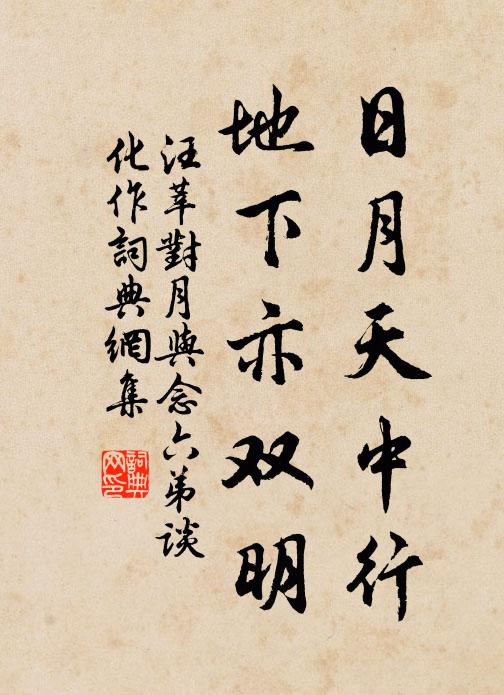 日月天中行
地下亦双明
汪莘對月與念六弟談
化作詞典網集
詞典
网印